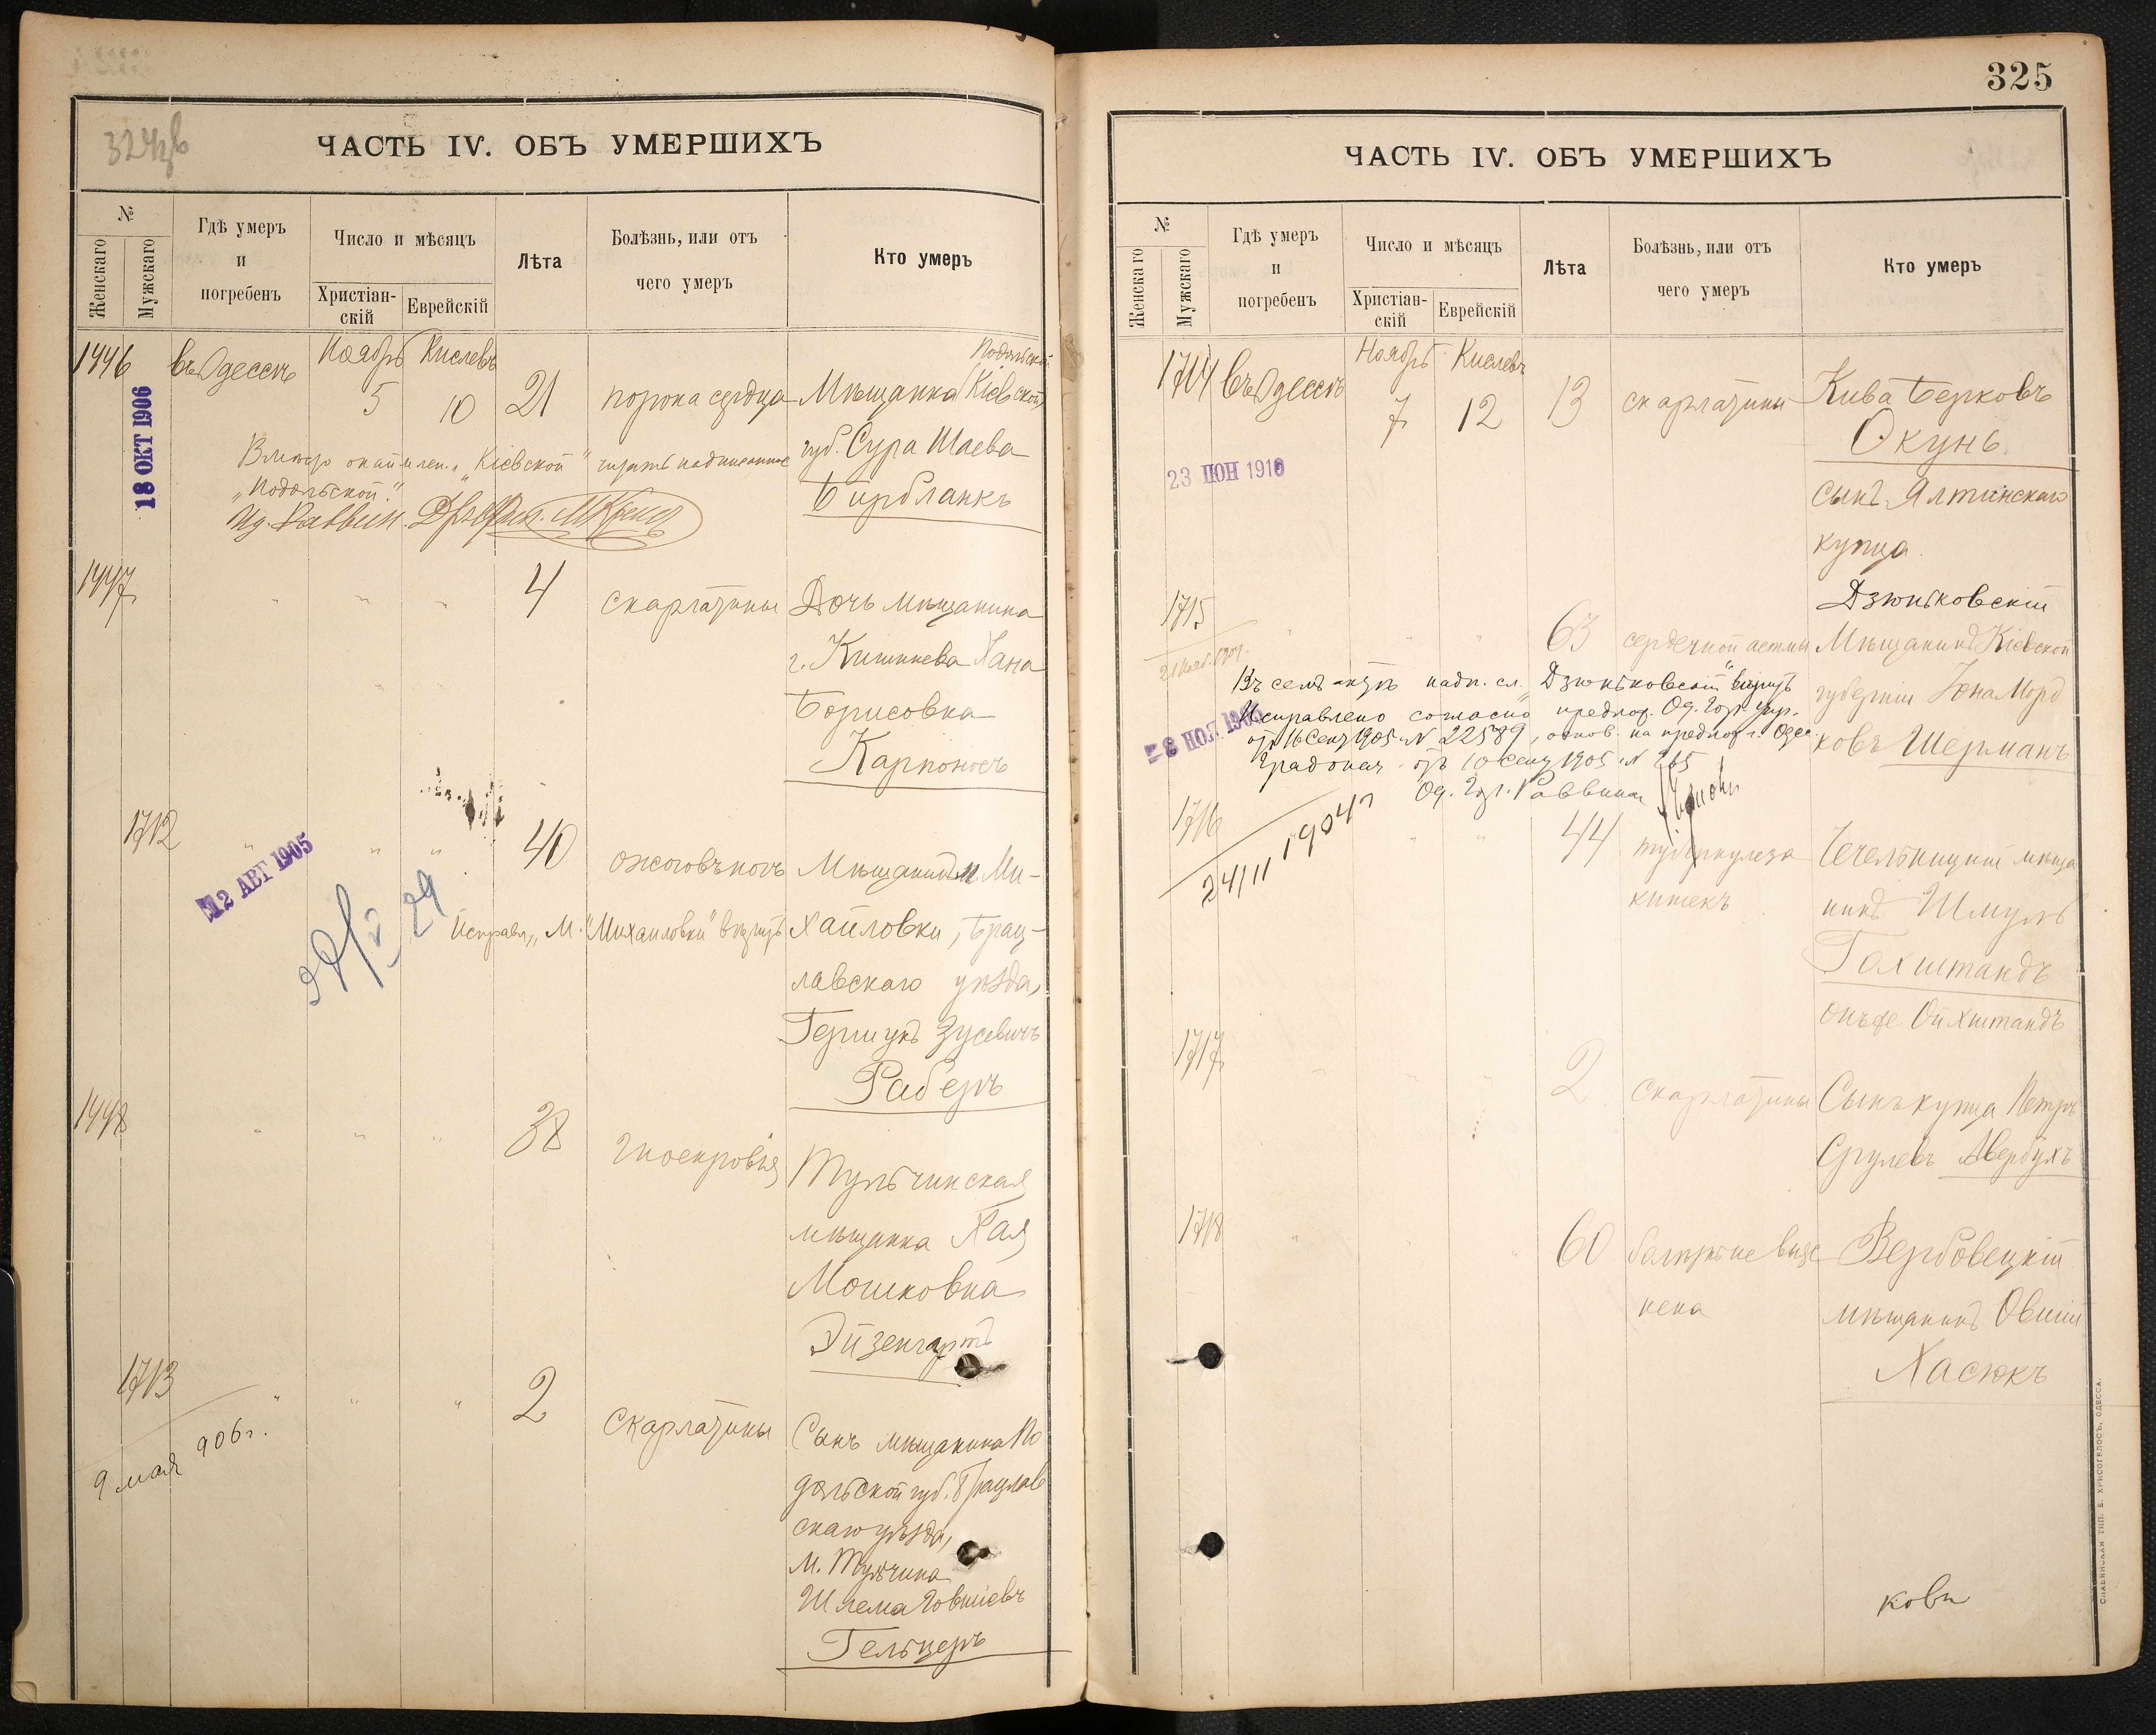 324 об
ЧАСТЬ IV. ОБЪ УМЕРШИХЪ
№
Женскаго
Мужскаго
Гдѣ умеръ
и
погребенъ
Число и мѣсяцъ
Христіан-
скій
Еврейскій
Лѣта
Болѣзнь, или отъ
чего умеръ
Кто умеръ
1446
въ Одессѣ
Ноябрь
5
Кислевъ
10
21
порока сердца
Подольской
Мѣщанка (Кіевской)
губ. Сура Шаева
Бирбланкъ
18 ОКТ 1906
"Кіевской" читать надписанное
"Подольской."
Раввин
1447
4
скарлатины
Дочь мѣщанина
г. Кишинева Хана
Борисовна
Карпоносъ
1712
12 АВГ 1905
40
ожоговъ ногъ
Мѣщанинъ м. Ми-
хайловки, Брац-
лавскаго уѣзда,
Гершунъ Зусевичъ
Раберъ
Исправл. "М. Михайловки" вѣрить
1448
38
гноекровія
Тульчинская
мѣщанка Хая
Мошковна
Эйзенгартъ
1713
9 мая 906 г.
2
Скарлатины
Сынъ мѣщанина По
дольской губ. Брацлав
скаго уѣзда,
м. Тульчина
Шлема Говшіевъ
Гельцеръ
325
ЧАСТЬ IV. ОБЪ УМЕРШИХЪ
№
Женскаго
Мужскаго
Гдѣ умеръ
и
погребенъ
Число и мѣсяцъ
Христіан-
скій
Еврейскій
Лѣта
Болѣзнь, или отъ
чего умеръ
Кто умеръ
1714
въ Одессѣ
Ноябрь
7
Кислевъ
12
13
скарлатины
Кива Берковъ
Окунь.
сынъ Ялтинскаго
купца.
23 ІЮН 1910
1715
63
сердечной астмы
Дзюньковскій
Мѣщанинъ Кіевской
губерніи Іона Морд
ковъ Шерманъ
Въ семъ актѣ надп. сл. "Дзюньковскій" вѣрить
Исправлено согласно предлож. Од. Гор. Упр.
отъ 16 Сент 1905 № 22589, основ. на предлож. г. Одес.
Градонач. отъ 10 Сент 1905 № 265
Од. Гор. Раввинъ
1716
24/11 1904 г
44
туберкулеза
кишекъ
Чечельницкій мѣща
нинъ Шмуль
Гохштандъ
онъ же Ойхштандъ
1717
2
скарлатины
Сынъ купца Петръ
Срулевъ Авербухъ
1718
60
Вербовецкій
мѣщанинъ Овшій
Хасюкъ
СЛАВЯНСКАЯ ТИП. Б. ХРЫСОГЕЛОСЪ, ОДЕССА.